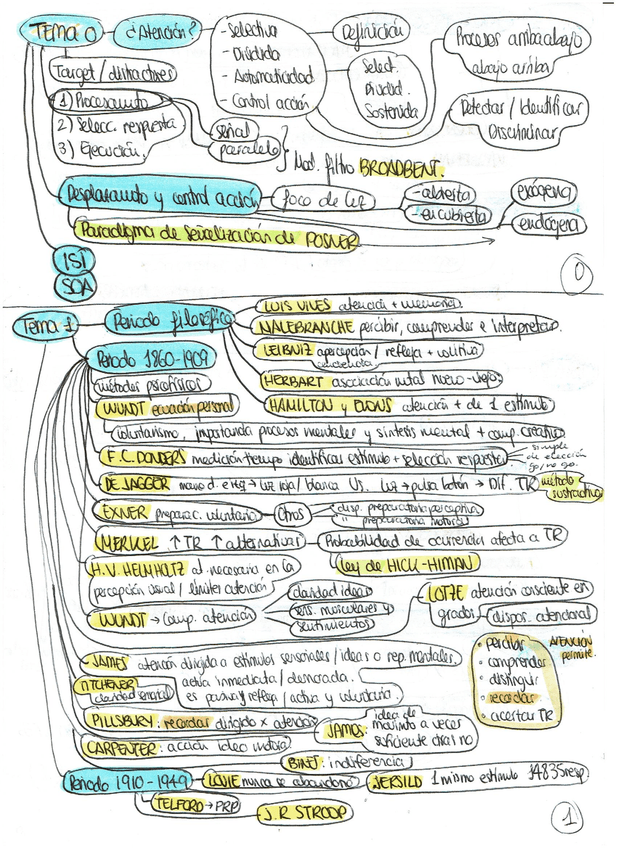 TEMA 0
¿Atención?
- Selectiva
- Dividida
- Automaticidad
- Control acción
Definición
Select.
Divid.
Sostenida
Procesos arriba abajo
abajo arriba
Detectar / Identificar
Discriminar
Target / distractores
1) Procesamiento
2) Selecc. respuesta
3) Ejecución.
señal
paralelo
Mod. filtro BROADBENT.
Desplazamiento y control acción
foco de luz
- abierta
- encubierta
exógena
endógena
Paradigma de señalización de POSNER
ISI
SOA
0
Tema 1
Periodo filosófico
LUIS VIVES atención + memoria.
MALEBRANCHE percibir, comprender e interpretar.
LEIBNIZ apercepción / refleja + volitiva
HERBART asociación mental nuevo-viejo
HAMILTON y atención + de 1 estímulo
Periodo 1860-1909
métodos psicofísicos
WUNDT ecuación personal
voluntarismo, importancia procesos mentales y síntesis mental + comp. creativo
F.C. DONDERS medición tiempo identificar estímulo + selección respuesta
- simple
- de elección
- go/no go.
DE JAGGER luz roja / blanca Vs. luz → pulsa botón → Dif. TR
método sustractivo
EXNER preparac. voluntaria
Otros
disp. preparatoria perceptiva
" preparatoria motora
MERKEL ↑ TR ↑ alternativas
Probabilidad de ocurrencia afecta a TR
H.V. HELMHOLTZ at. necesaria en la
percepción visual / límites atención
Ley de HICK-HIMAN
WUNDT → Comp. atención
claridad ideas
sens. musculares y
sentimientos
LOTZE atención consciente en
grados
dispos. atencional
JAMES atención dirigida a estímulos sensoriales / ideas o rep. mentales.
TITCHENER
claridad sensorial
activa inmediata / demorada.
es pasiva y refleja / activa y voluntaria.
ATENCIÓN
permite.
• percibir
• comprender
• distinguir
• recordar
• acortar TR
PILLSBURY: recordar dirigido x atención
JAMES:
idea de
movimto a veces
suficiente otras no
CARPENTER: acción ideo motora.
BINET: indiferencia
Periodo 1910-1949
LOVIE nunca se abandonó
JERSILD 1 mismo estímulo
TELFORD → PRP
J.R STROOP
1